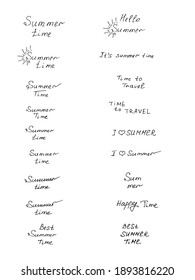 Summer
time
Summer
time
Summer
Time
Summer
Time
Summer
time
Summer
time
Summer
time
Summer
time
Best
Summer
Time
Hello
Summer
It's summer time
Time to
Travel
TIME
to TRAVEL
I ♡ SUMMER
I ♡ Summer
Sum
mer
Happy Time
BEST
SUMMER
TIME
www.shutterstock.com · 1893816220